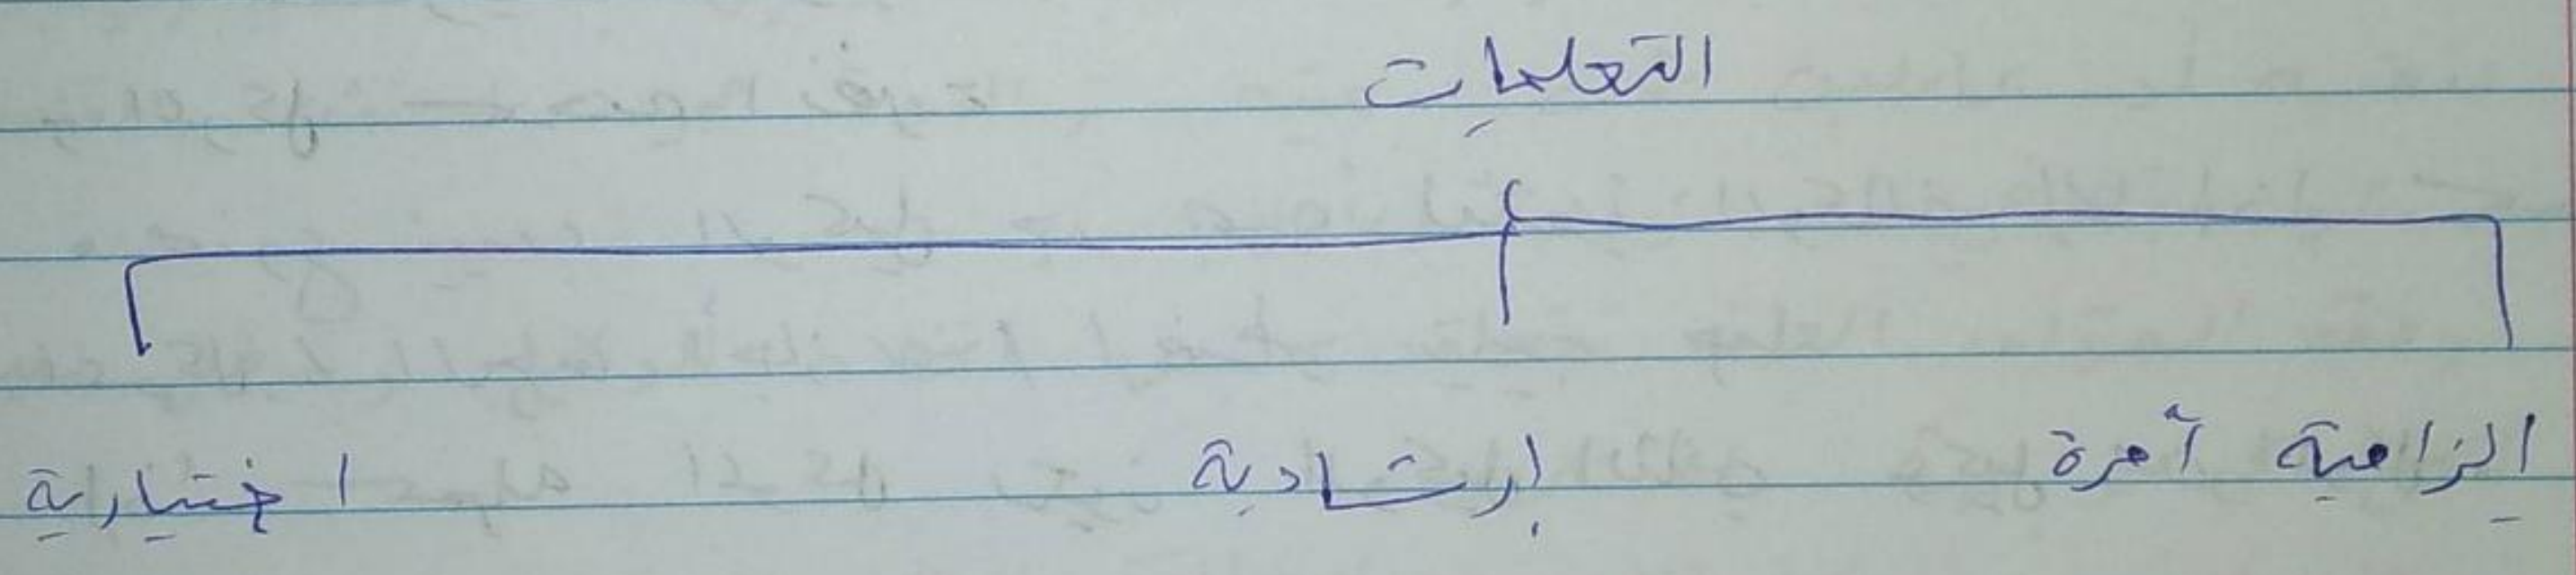 التعليمات
الزامية آمرة إرشادية اختيارية